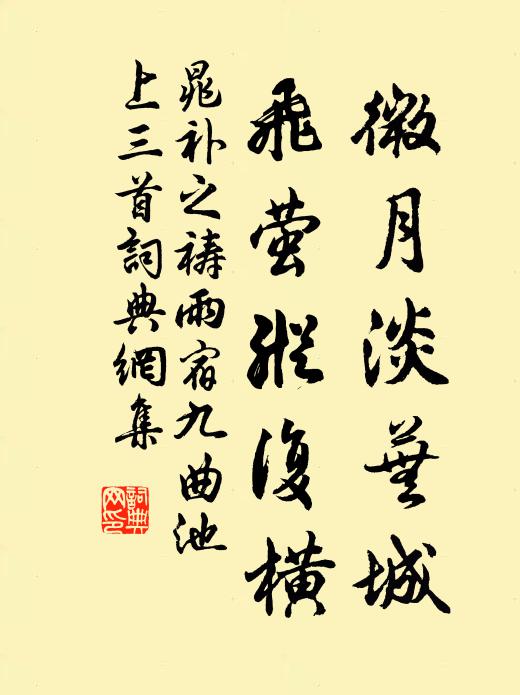 微月淡蕪城
飛萤縱復橫
晁补之禱雨宿九曲池
上三首詞典網集
詞典网印